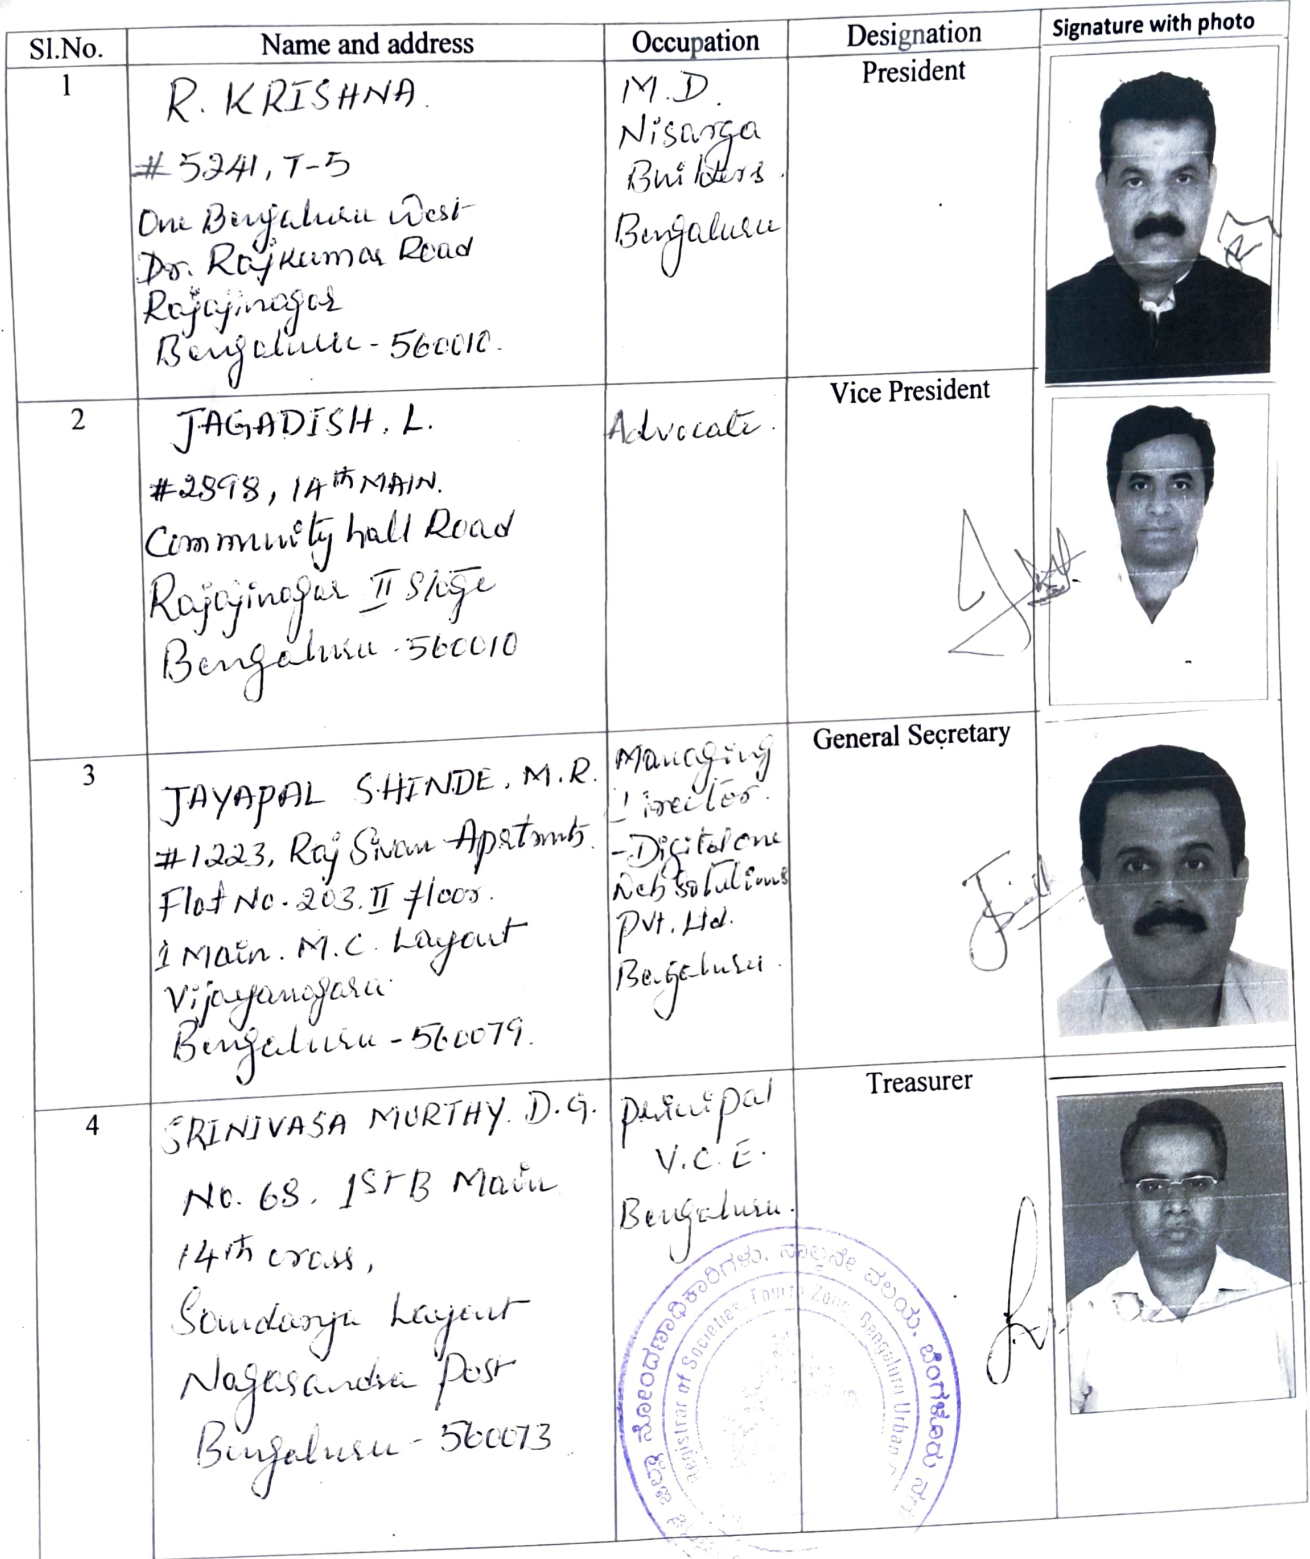 Sl.No. Name and address Occupation Designation Signature with photo
1
R. KRISHNA.
# 5241, T-5
One Bengaluru West
Dr. Rajkumar Road
Rajajinagar
Bengaluru - 560010.
M.D.
Nisarga
Builders.
Bengaluru
President
2
JAGADISH. L.
#2898, 14th MAIN.
Community hall Road
Rajajinagar II Stage
Bengaluru - 560010
Advocate.
Vice President
3
JAYAPAL SHINDE. M.R.
#1223, Raj Sivan Apartments.
Flat No. 203. II floor.
1 Main. M.C. Layout
Vijayanagara
Bengaluru - 560079.
Managing
Director.
- Digital one
Web solutions
Pvt. Ltd.
Bengaluru.
General Secretary
4
SRINIVASA MURTHY. D.G.
No. 68. 1st B Main
14th cross,
Soundarya Layout
Nagasandra Post
Bengaluru - 560073
Principal
V.C.E.
Bengaluru.
Treasurer
ಜಿಲ್ಲಾ ನೋಂದಣಾಧಿಕಾರಿಗಳು, ನಾಲ್ಕನೇ ವಲಯ, ಬೆಂಗಳೂರು ನಗರ
Registrar of Societies, Fourth Zone, Bengaluru Urban